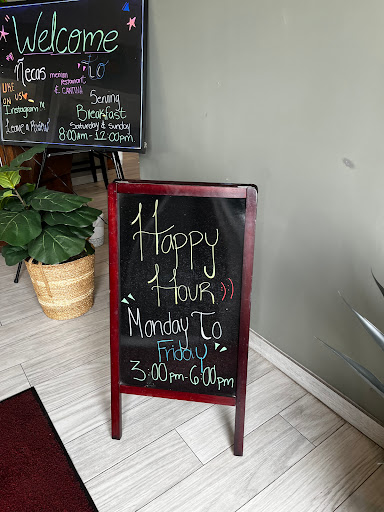 Welcome
To
Necos mexican
restaurant
& CANTINA
LIKE
US
ON
Instagram
Leave a Review
Serving
Breakfast
Saturday & Sunday
8:00am-12:00pm
Happy
Hour :)
Monday To
Friday
3:00pm-6:00pm